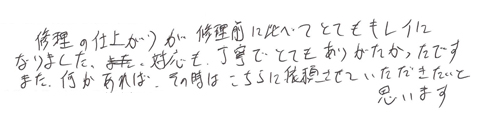 修理の仕上がりが修理前に比べてとてもキレイに
なりました、対応も、丁寧でとてもありがたかったです
また、何かあれば、その時はこちらに依頼させていただきたいと
思います